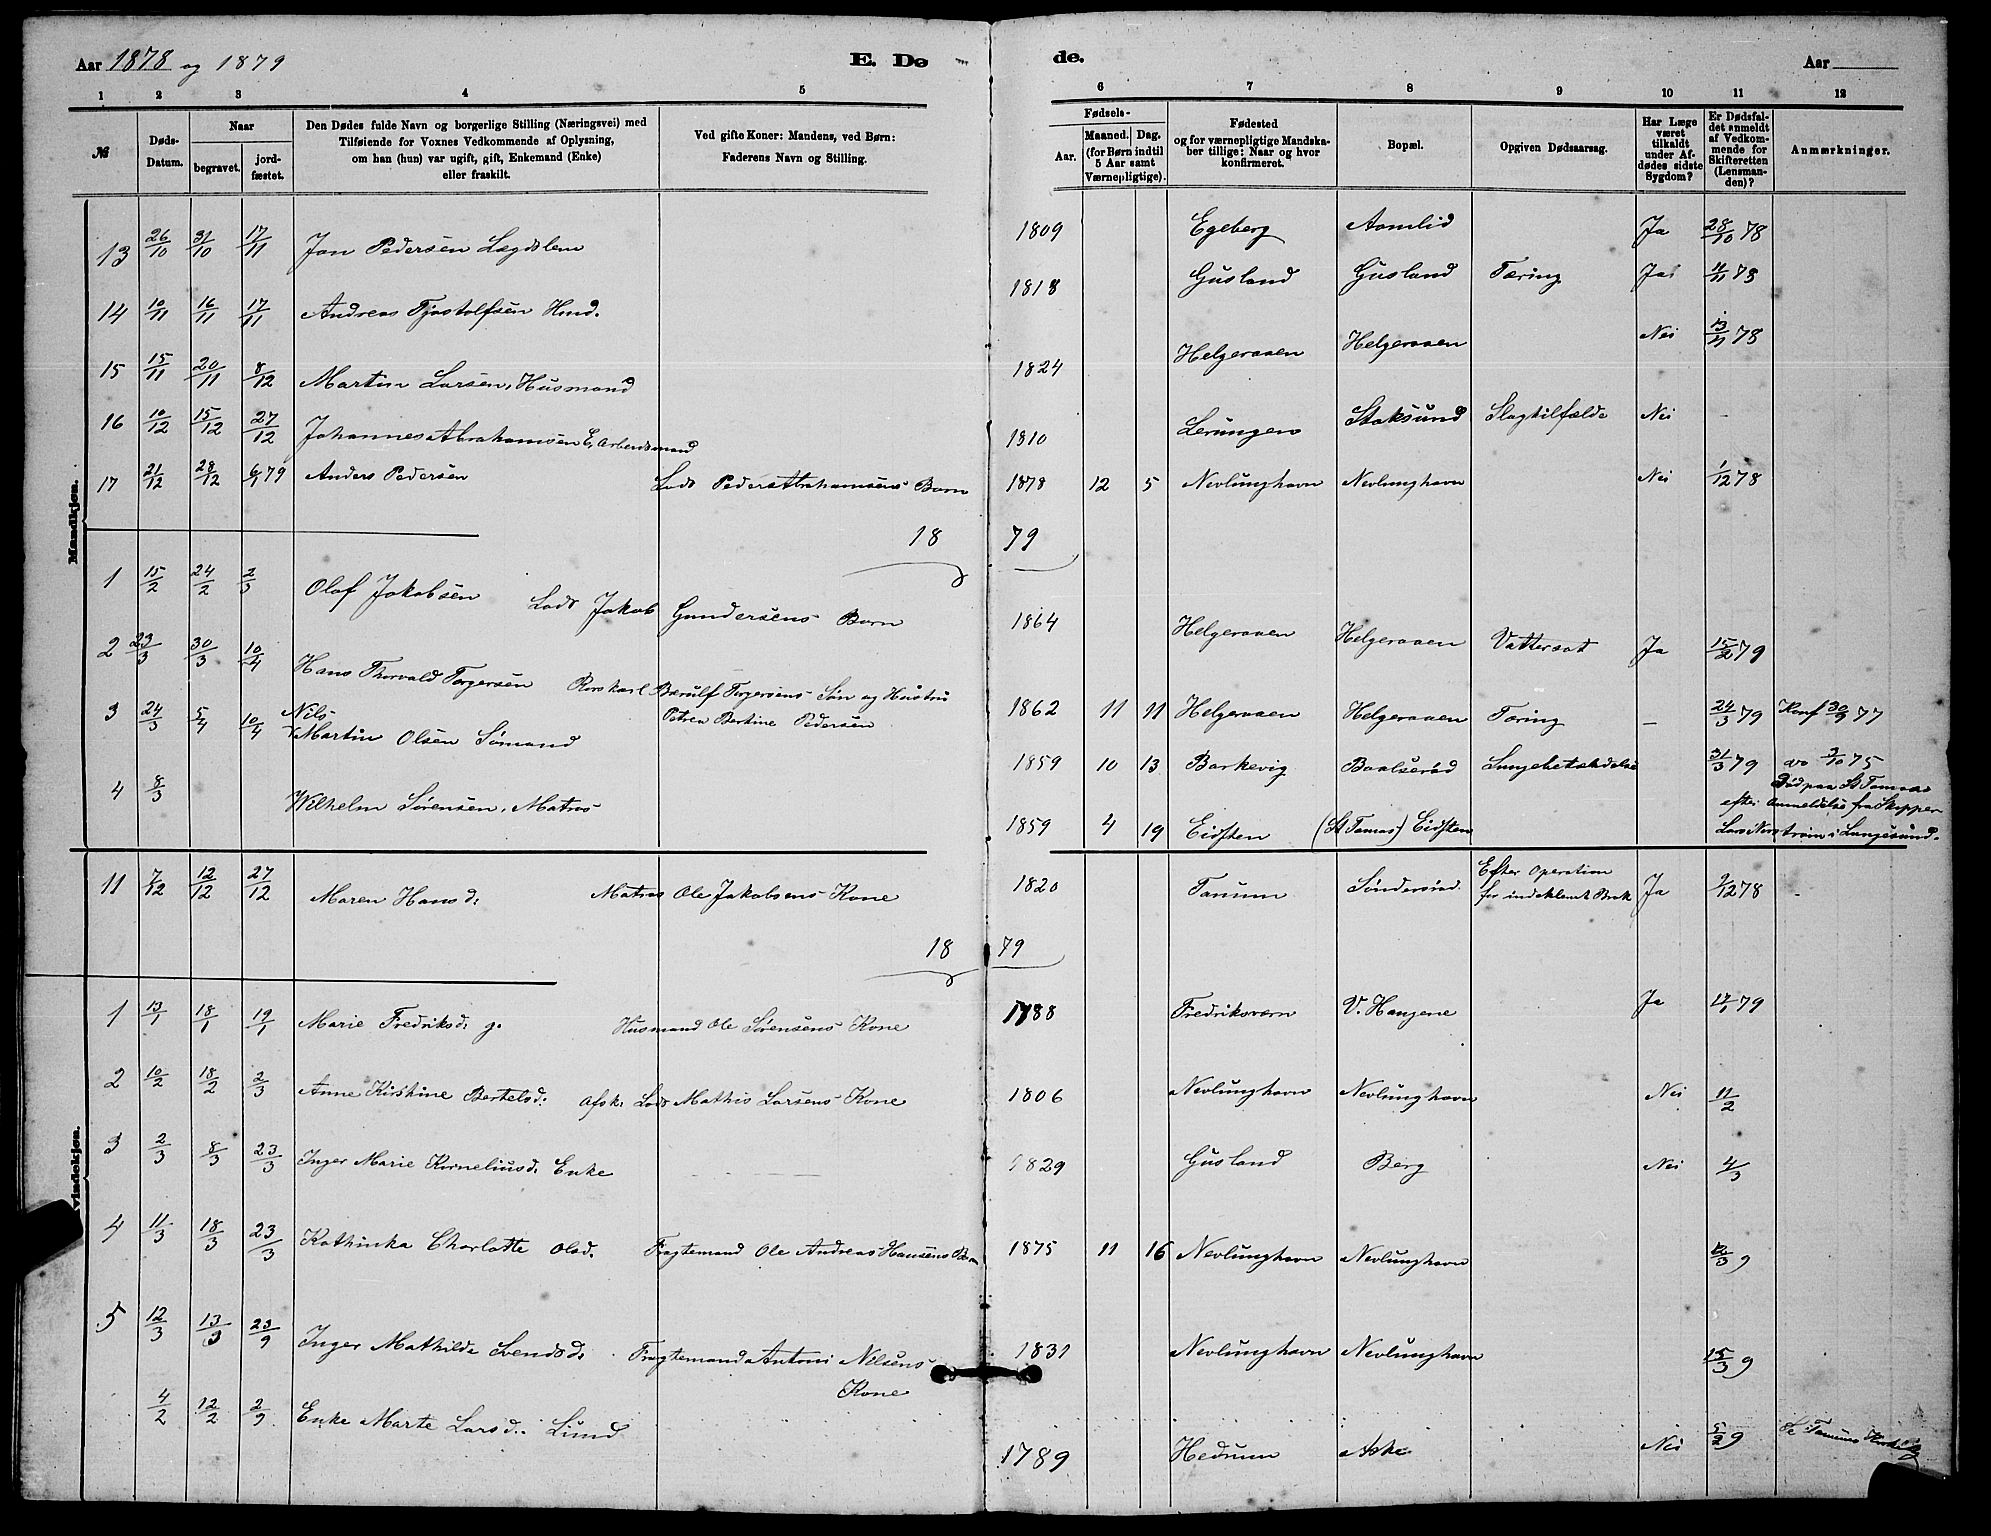 Aar 1878 og 1879 E. Dø de. Aar
1 2 3 4 5 6 7 8 9 10 11 12
№ Døds-Datum. Naar begravet. jordfæstet. Den Dødes fulde Navn og borgerlige Stilling (Næringsvei) med Tilføiende for Voxnes Vedkommende af Oplysning, om han (hun) var ugift, gift, Enkemand (Enke) eller fraskilt. Ved gifte Koner: Mandens, ved Børn: Faderens Navn og Stilling. Fødsels- Aar. Maaned. Dag. (for Børn indtil 5 Aar samt Værnepligtige). Fødested og for værnepligtige Mandskaber tillige: Naar og hvor konfirmeret. Bopæl. Opgiven Dødsaarsag. Har Læge været tilkaldt under Afdødes sidste Sygdom? Er Dødsfaldet anmeldt af Vedkommende for Skifteretten (Lensmanden)? Anmærkninger.
Mandkjøn.
13 26/10 31/10 17/11 Jon Pedersen Lægdslem 1809 Egeberg Aomlid Ja 28/10 78
14 10/11 16/11 17/11 Andreas Tjostolfsen Hmd. 1818 Gusland Gusland Tæring Ja 11/11 78
15 15/11 20/11 8/12 Martin Larsen, Husmand 1824 Helgeraaen Helgeraaen Nei 78
16 10/12 15/12 27/12 Johannes Abrahamsen E, Arbeidsmand 1810 Lerungen Stoksund Slagtilfælde Nei -
17 21/12 28/12 6/1 79 Anders Pedersen Lods Peder Abrahamsens Barn 1878 12 5 Nevlunghavn Nevlunghavn Nei 1/12 78
18 79
1 15/2 24/2 2/3 Olaf Jakobsen Lods Jakob Gundersens Barn 1864 Helgeraaen Helgeraaen Vattersot Ja 15/2 79
2 23/3 30/3 10/4 Hans Thorvald Torgersen Rorskarl Børulf Torgersens Søn og Hustru Petrea Bertine Pedersen 1862 11 11 Helgeraaen Helgeraaen Tæring - 24/3 79 Konf 30/9 77
3 24/3 5/4 10/4 Nils Martin Olsen Sømand 1859 10 13 Barkevig Baalserød Lungebetændelse 31/3 79 do 3/10 75
4 8/3 Wilhelm Sørensen, Matros 1859 4 19 Eidsten (St Tomas) Eidsten Død paa St Tomas efter Anmeldelse fra Skipper Lars Norstrøm i Langesund.
11 7/12 12/12 27/12 Maren Hansd. Matros Ole Jakobsens Kone 1820 Tanum Søndersrød Efter Operation for indeklemt Brok Ja 9/12 78 -
18 79
Kvindekjøn.
1 13/1 18/1 19/1 Marie Fredriksd. g. Husmand Ole Sørensens Kone 1788 Fredriksværn V. Haugene Ja 79
2 10/2 18/2 2/3 Anne Kirstine Bertelsd. Afsk. Lods Mathis Larsens Kone 1806 Nevlunghavn Nevlunghavn Nei 11/2
3 2/3 8/3 23/3 Inger Marie Korneliusd. Enke 1829 Gusland Berg Nei 4/3
4 11/3 18/3 23/3 Kathinka Charlotte Olsd. Fragtemand Ole Andreas Hansens Barn 1875 11 16 Nevlunghavn Nevlunghavn 9
5 12/3 13/3 23/9 Inger Mathilde Svendsd. Fragtemand Antoni Nilsens Kone 1831 Nevlunghavn Nevlunghavn 15/3 9
4/2 12/2 2/9 Enke Marte Larsd. Lund 1789 Hedrum Aske Nei 5/2 9 Se Tanums